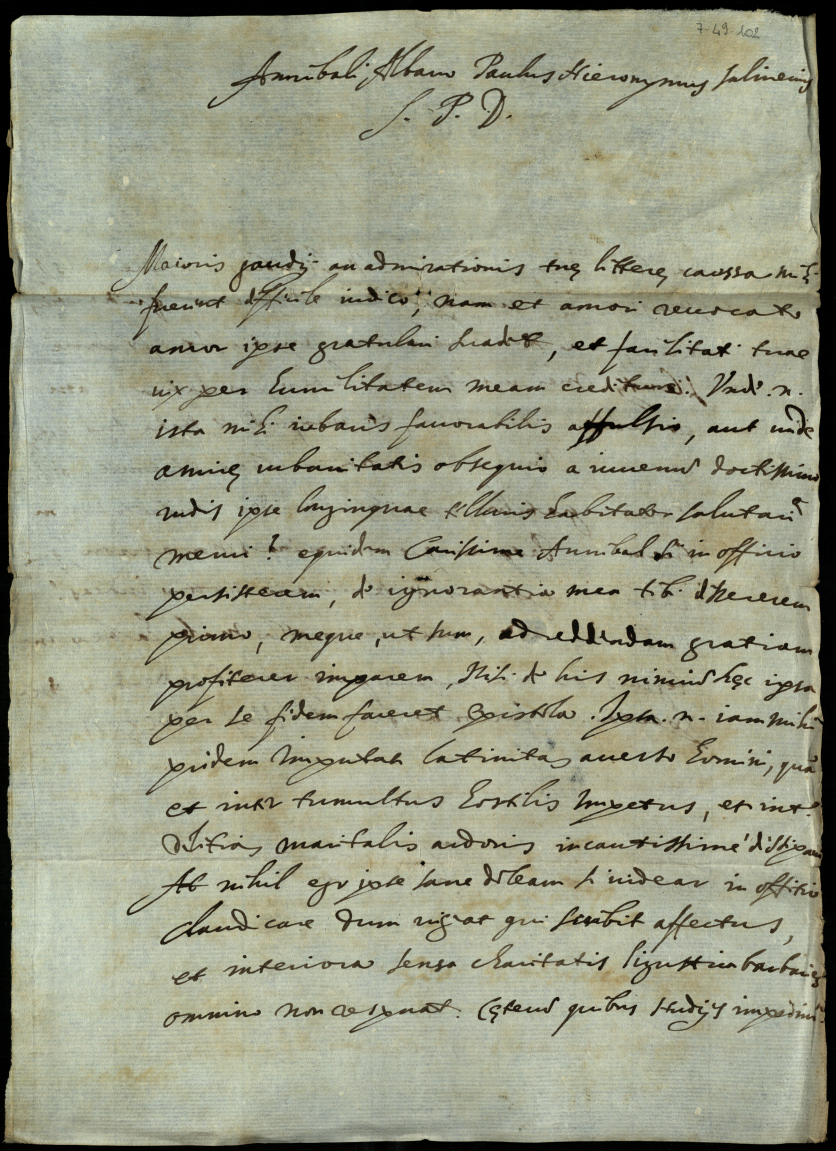 7-49-102
Annibali Albano Paulus Hieronymus Salinerius
S. P. D.
Maioris gaudij an admirationis tuę litterę caussa mihi
fuerint difficile iudico; nam et amori
amor ipse gratulari , et facilitati tuae
vix per humilitatem meam . Vnde .n.
ista mihi iubaris fauorabilis affulsio, aut unde
amicę urbanitatis obsequio a iuuene doctissimo
rudis ipse longinquae habitator salutari
merui? equidem Carissime Annibal si in officio
persisterem, de ignorantia mea tibi
, meque, ut sum, ad reddendam gratiam
profiterer imparem, nisi de his hęc ipsa
per se fidem faceret epistola. Ipsa .n. iam mihi
pridem latinitas homini, quã
et inter tumultus hostilis impetus, et inter
maritalis ardoris incautissime
At nihil ego ipse sane doleam si videar in officio
claudicare dum vigeat qui scribit affectus,
et interiora sensa charitatis barbaries
omnino non respuat. Cęterum quibus studijs